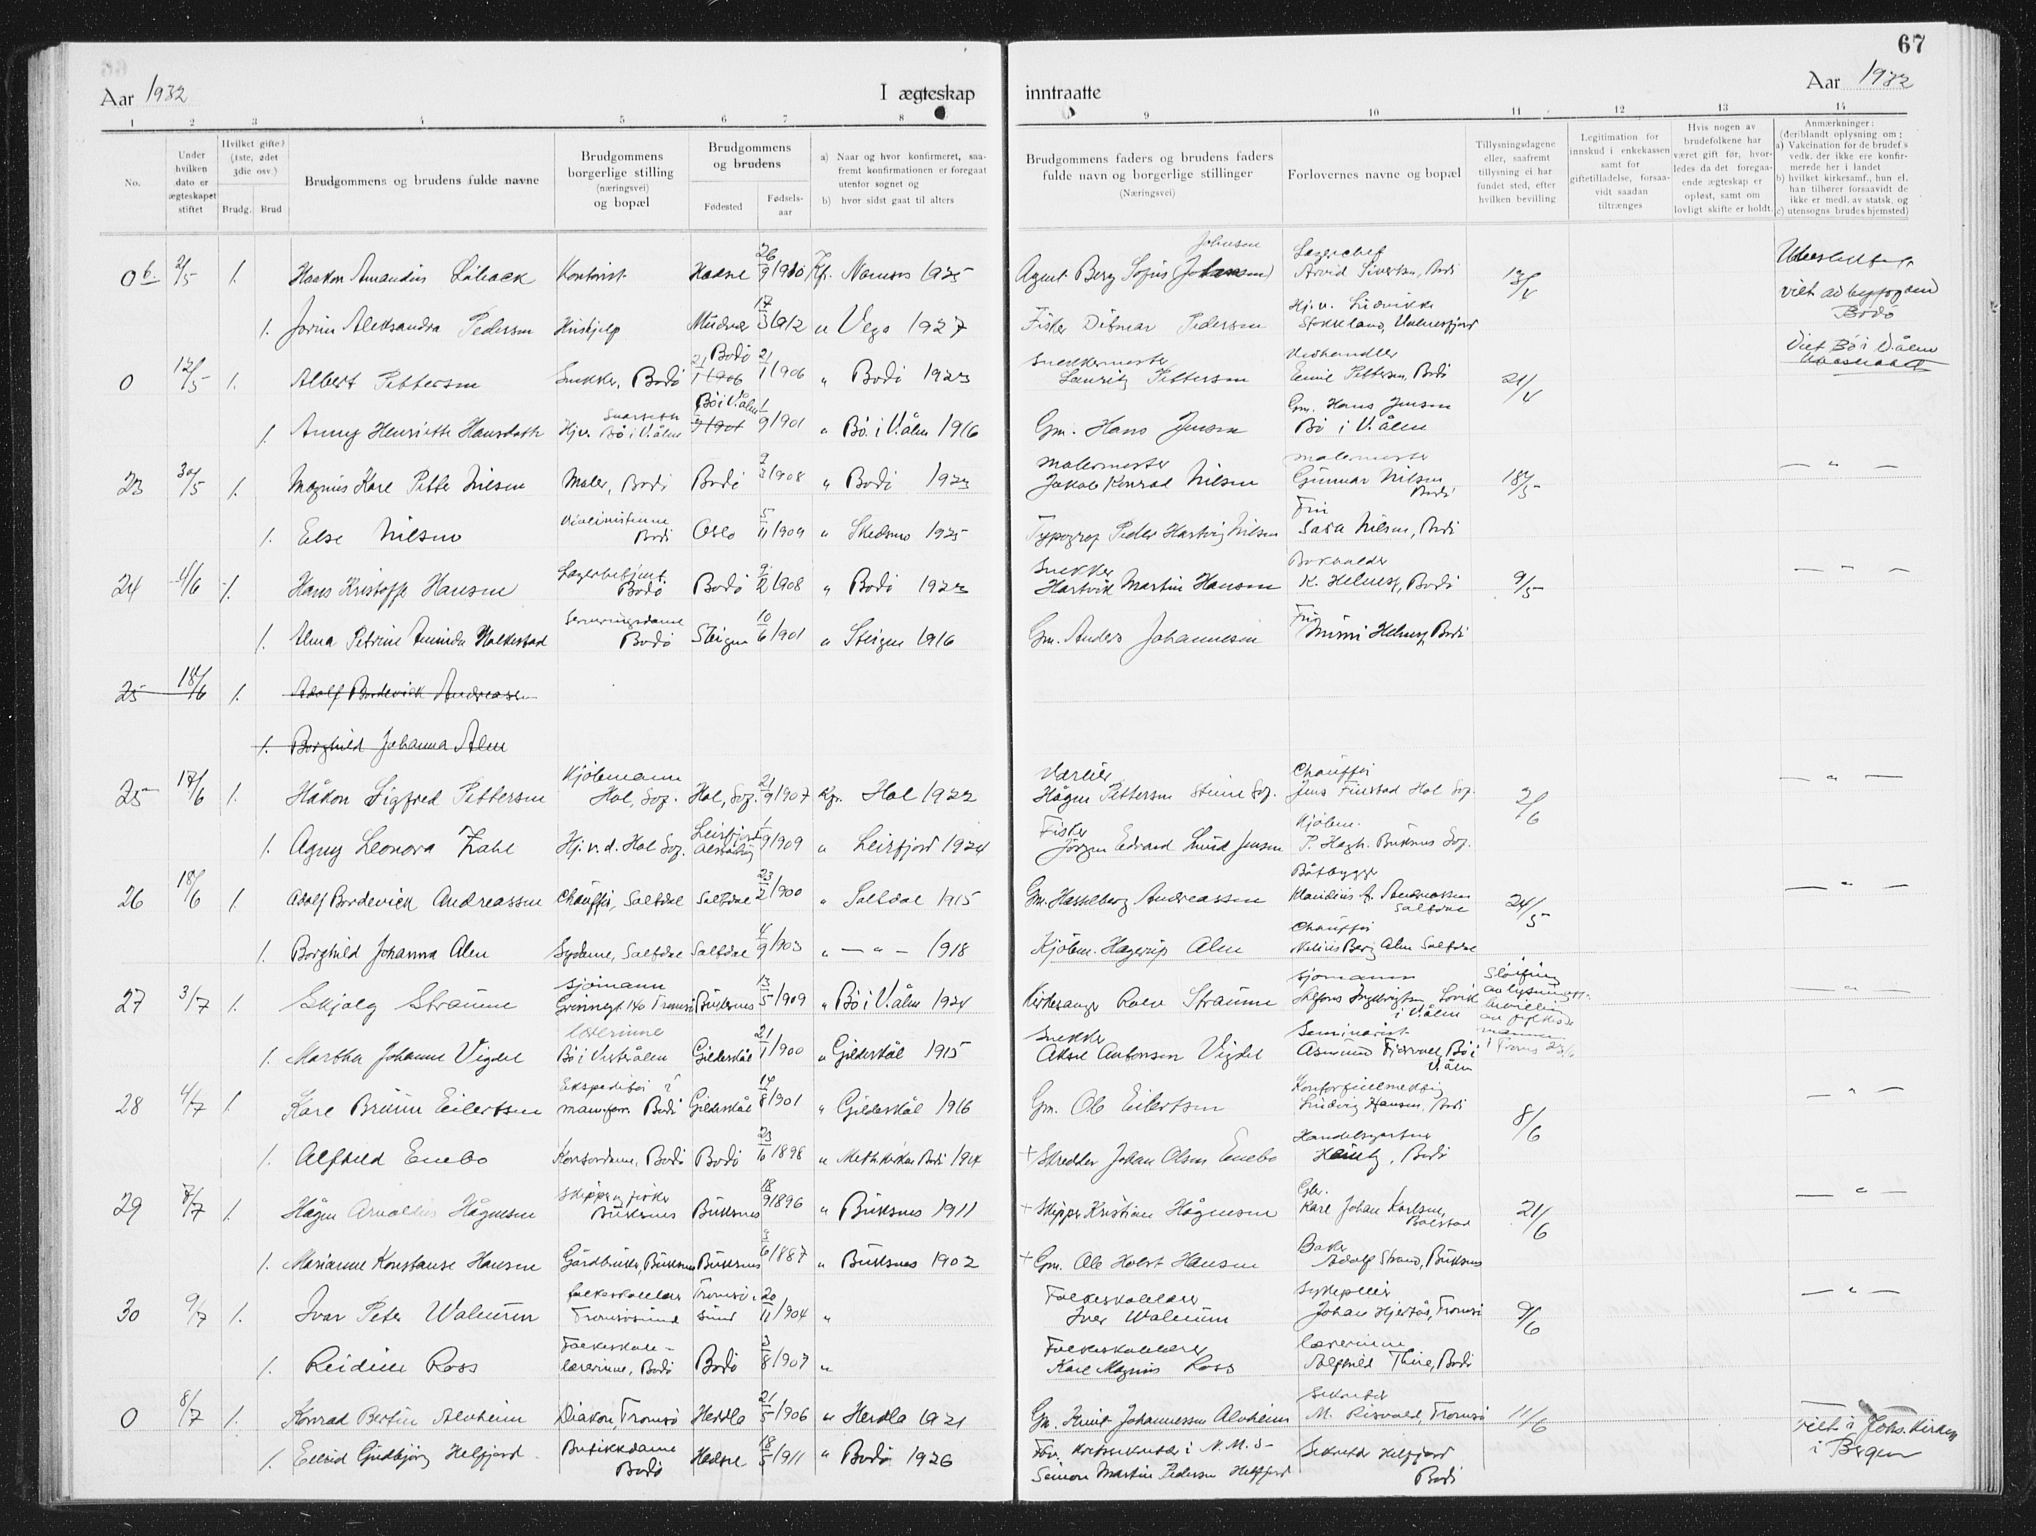 67
Aar 1932
I ægteskap
inntraatte
Aar 1932
1 2 3 4 5 6 7 8 9 10 11 12 13 14
No.
Under hvilken dato er ægteskapet stiftet
Hvilket gifte? (1ste, 2det 3die osv.)
Brudg. Brud
Brudgommens og brudens fulde navne
Brudgommens borgerlige stilling (næringsvei) og bopæl
Brudgommens og brudens
Fødested
Fødsels-aar
a) Naar og hvor konfirmeret, saa-fremt konfirmationen er foregaat utenfor sognet og
b) hvor sidst gaat til alters
Brudgommens faders og brudens faders fulde navn og borgerlige stillinger
(Næringsvei)
Forlovernes navne og bopæl
Tillysningsdagene eller, saafremt tillysning ei har fundet sted, efter hvilken bevilling
Legitimation for innskud i enkekassen samt for giftetilladelse, forsaa-vidt saadan tiltrænges
Hvis nogen av brudefolkene har været gift før, hvor-ledes da det foregaa-ende ægteskap er opløst, samt om lovligt skifte er holdt.
Anmærkninger: (deriblandt oplysning om:
a) Vakcination for de brudef.s vedk. der ikke ere konfir-merede her i landet
b) hvilket kirkesamf., hun el. han tilhører forsaavidt de ikke er medl. av statsk. og
c) utensogns brudes hjemsted)
0 b. 2/5 1. Haakon Amandus Kontorist Hadsel 26/9 1910 Kf. Namsos 1925 Agent Berg Sofus Johnson Lagerchef Arvid Sivertsen, Bodö 13/4
viet av byfogden Bodö
1. Jorun Aleksandra Pedersen Hushjelp 17/3 1912 " Vega 1927 Fisker Ditmar Pedersen Hj.v. Ludvikke Stokkeland, Valnesfjord
0 12/5 1. Albert Pettersen Snekker, Bodö Bodö 21/1 1906 " Bodö 1923 Snekkermester Lauritz Pettersen Vedhandler Emil Pettersen, Bodö 21/4 Viet Bö i V.ålen
1. Anny Henriette Hansdatter Hjv. Bö i V.ålen Bö i V.ålen 1/9 1901 " Bö i V.ålen 1916 Gm. Hans Jensen Gm. Hans Jensen Bö i V.ålen
23 30/5 1. Magnus Kare Petter Nilsen Maler, Bodö Bodö 9/3 1908 " Bodö 1923 Malermester Jakob Konrad Nilsen Malermester Gunnar Nilsen Bodö 18/5 — " —
1. Else Nilsen Violinistinne Bodö Oslo 5/11 1909 " Skedsmo 1925 Typograf Peder Hartvig Nilsen Fru Sara Nilsen, Bodö
24 4/6 1. Hans Kristoffer Hansen Lagerbetjent Bodö Bodö 9/2 1908 " Bodö 1923 Snekker Hartvik Martin Hansen Bokholder K. Helness, Bodö 9/5 — " —
1. Alma Petrine Aminda Holkestad Serveringsdame Bodö Steigen 10/6 1901 " Steigen 1916 Gm. Anders Johannesen Fru Mimi Helness, Bodö
25 18/6 1. Adolf Bordevick Andreassen
1. Borghild Johanna Alm
25 17/6 1. Håkon Sigfred Pettersen Kjöbmann Hol, Sog. Hol, Sog. 21/9 1907 Kf. Hol 1922 Væreier Hågen Pettersen Stine Sog. Chaufför Jens Finstad Hol Sog. 2/6 — " —
1. Agny Leonora Zahl Hj. v. d. Hol Sog. Leirfjord 1/9 1909 " Leirfjord 1924 Fisker Jörgen Edvard Lund Jensen Kjöbm. P. Hagh. Buksnes Sog.
26 18/6 1. Adolf Bordevick Andreassen Chaufför, Saltdal Saltdal 23/2 1900 " Saltdal 1915 Gm. Hasselberg Andreassen Båtbygger Klaudius A. Andreassen Saltdal 24/5 — " —
1. Borghild Johanna Alm Sydame, Saltdal Saltdal 4/9 1903 " — " — 1918 Kjöbm. Hagerup Alm Chaufför Berg Alm Saltdal
27 3/7 1. Skjalg Straume Sjömann Grönnegt. 140 Tromsö Buksnes 13/5 1909 " Bö i V.ålen 1924 Kirkesanger Rolv Straume Sjömann i V.ålen — " —
1. Martha Johanne Vigdel Lærerinne Bö i Vesterålen Gildeskål 21/1 1900 " Gildeskål 1915 Snekker Aksel Antonsen Vigdel Seminarist Asmund Fjærvoll, Bö i V.ålen
28 4/7 1. Kare Bruun Eilertsen Ekspeditör i Bodö Gildeskål 14/8 1901 " Gildeskål 1916 Gm. Ole Eilertsen Kontorfullmektig Ludvig Hansen, Bodö 8/6 — " —
1. Alfhild Enebo Kontordame, Bodö Bodö 23/6 1898 " Meth.kirken Bodö 1914 + Skredder Johan Olsen Enebo Handelsgartner Heintz, Bodö
29 7/7 1. Hågen Arnoldus Hågensen Skipper og fisker Buksnes Buksnes 18/9 1896 " Buksnes 1911 + Skipper Kristian Hågensen Gbr. Kare Johan Karlsen, Bolstad 21/6 — " —
1. Marianne Konstanse Hansen Gårdbruker, Buksnes Buksnes 3/6 1887 " Buksnes 1902 + Gm. Ole Holst Hansen Baker Adolf Strand, Buksnes
30 9/7 1. Ivar Peter Walnum Folkeskolelærer Tromsösund Tromsösund 20/11 1904 " Folkeskolelærer Iver Walnum Sykepleier Johan Hjertås, Tromsö 9/6 — " —
1. Reidun Ross Folkeskole-lærerinne, Bodö Bodö 3/8 1907 " Folkeskolelærer Kare Magnus Ross Lærerinne Alfhild Thue, Bodö
0 8/7 1. Konrad Bertin Alvheim Diakon Tromsö Herdla 21/5 1906 " Herdla 1921 Gm. Knut Johannessen Alvheim Sekretær M. Risvold, Tromsö 11/6 Viet i Johs. kirken i Bergen
1. Eldrid Gudbjörg Helfjord Butikkdame Bodö Hadsel 18/5 1911 " Bodö 1926 Forr. kretssekretær i N.M.S. Simon Martin Pedersen Helfjord Sekretær Helfjord Bodö